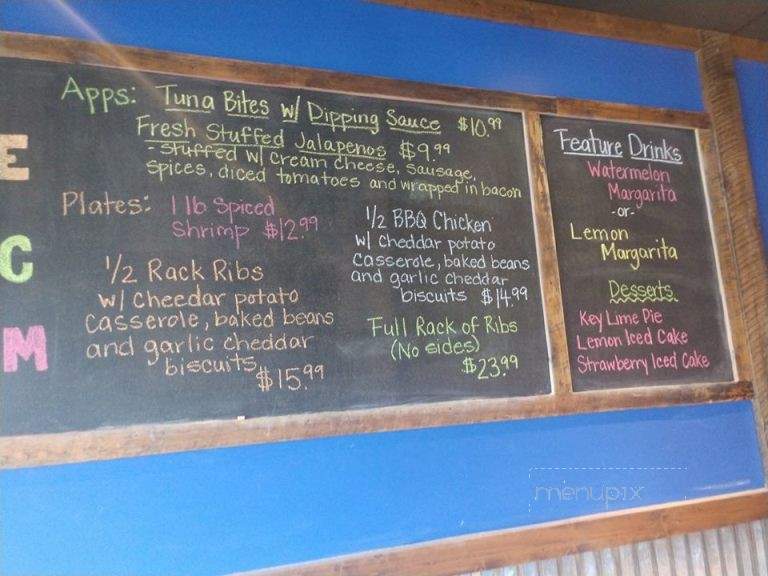 E
C
M
Apps: Tuna Bites w/ Dipping Sauce $10.99
Fresh Stuffed Jalapenos $9.99
- stuffed w/ cream cheese, sausage,
spices, diced tomatoes and wrapped in bacon
Plates: 1 lb Spiced
Shrimp $12.99
1/2 Rack Ribs
w/ Cheedar potato
casserole, baked beans
and garlic cheddar
biscuits $15.99
1/2 BBQ Chicken
w/ cheddar potato
casserole, baked beans
and garlic cheddar
biscuits $14.99
Full Rack of Ribs
(No sides)
$23.99
Feature Drinks
Watermelon
Margarita
-or-
Lemon
Margarita
Desserts
Key Lime Pie
Lemon Iced Cake
Strawberry Iced Cake
menupix